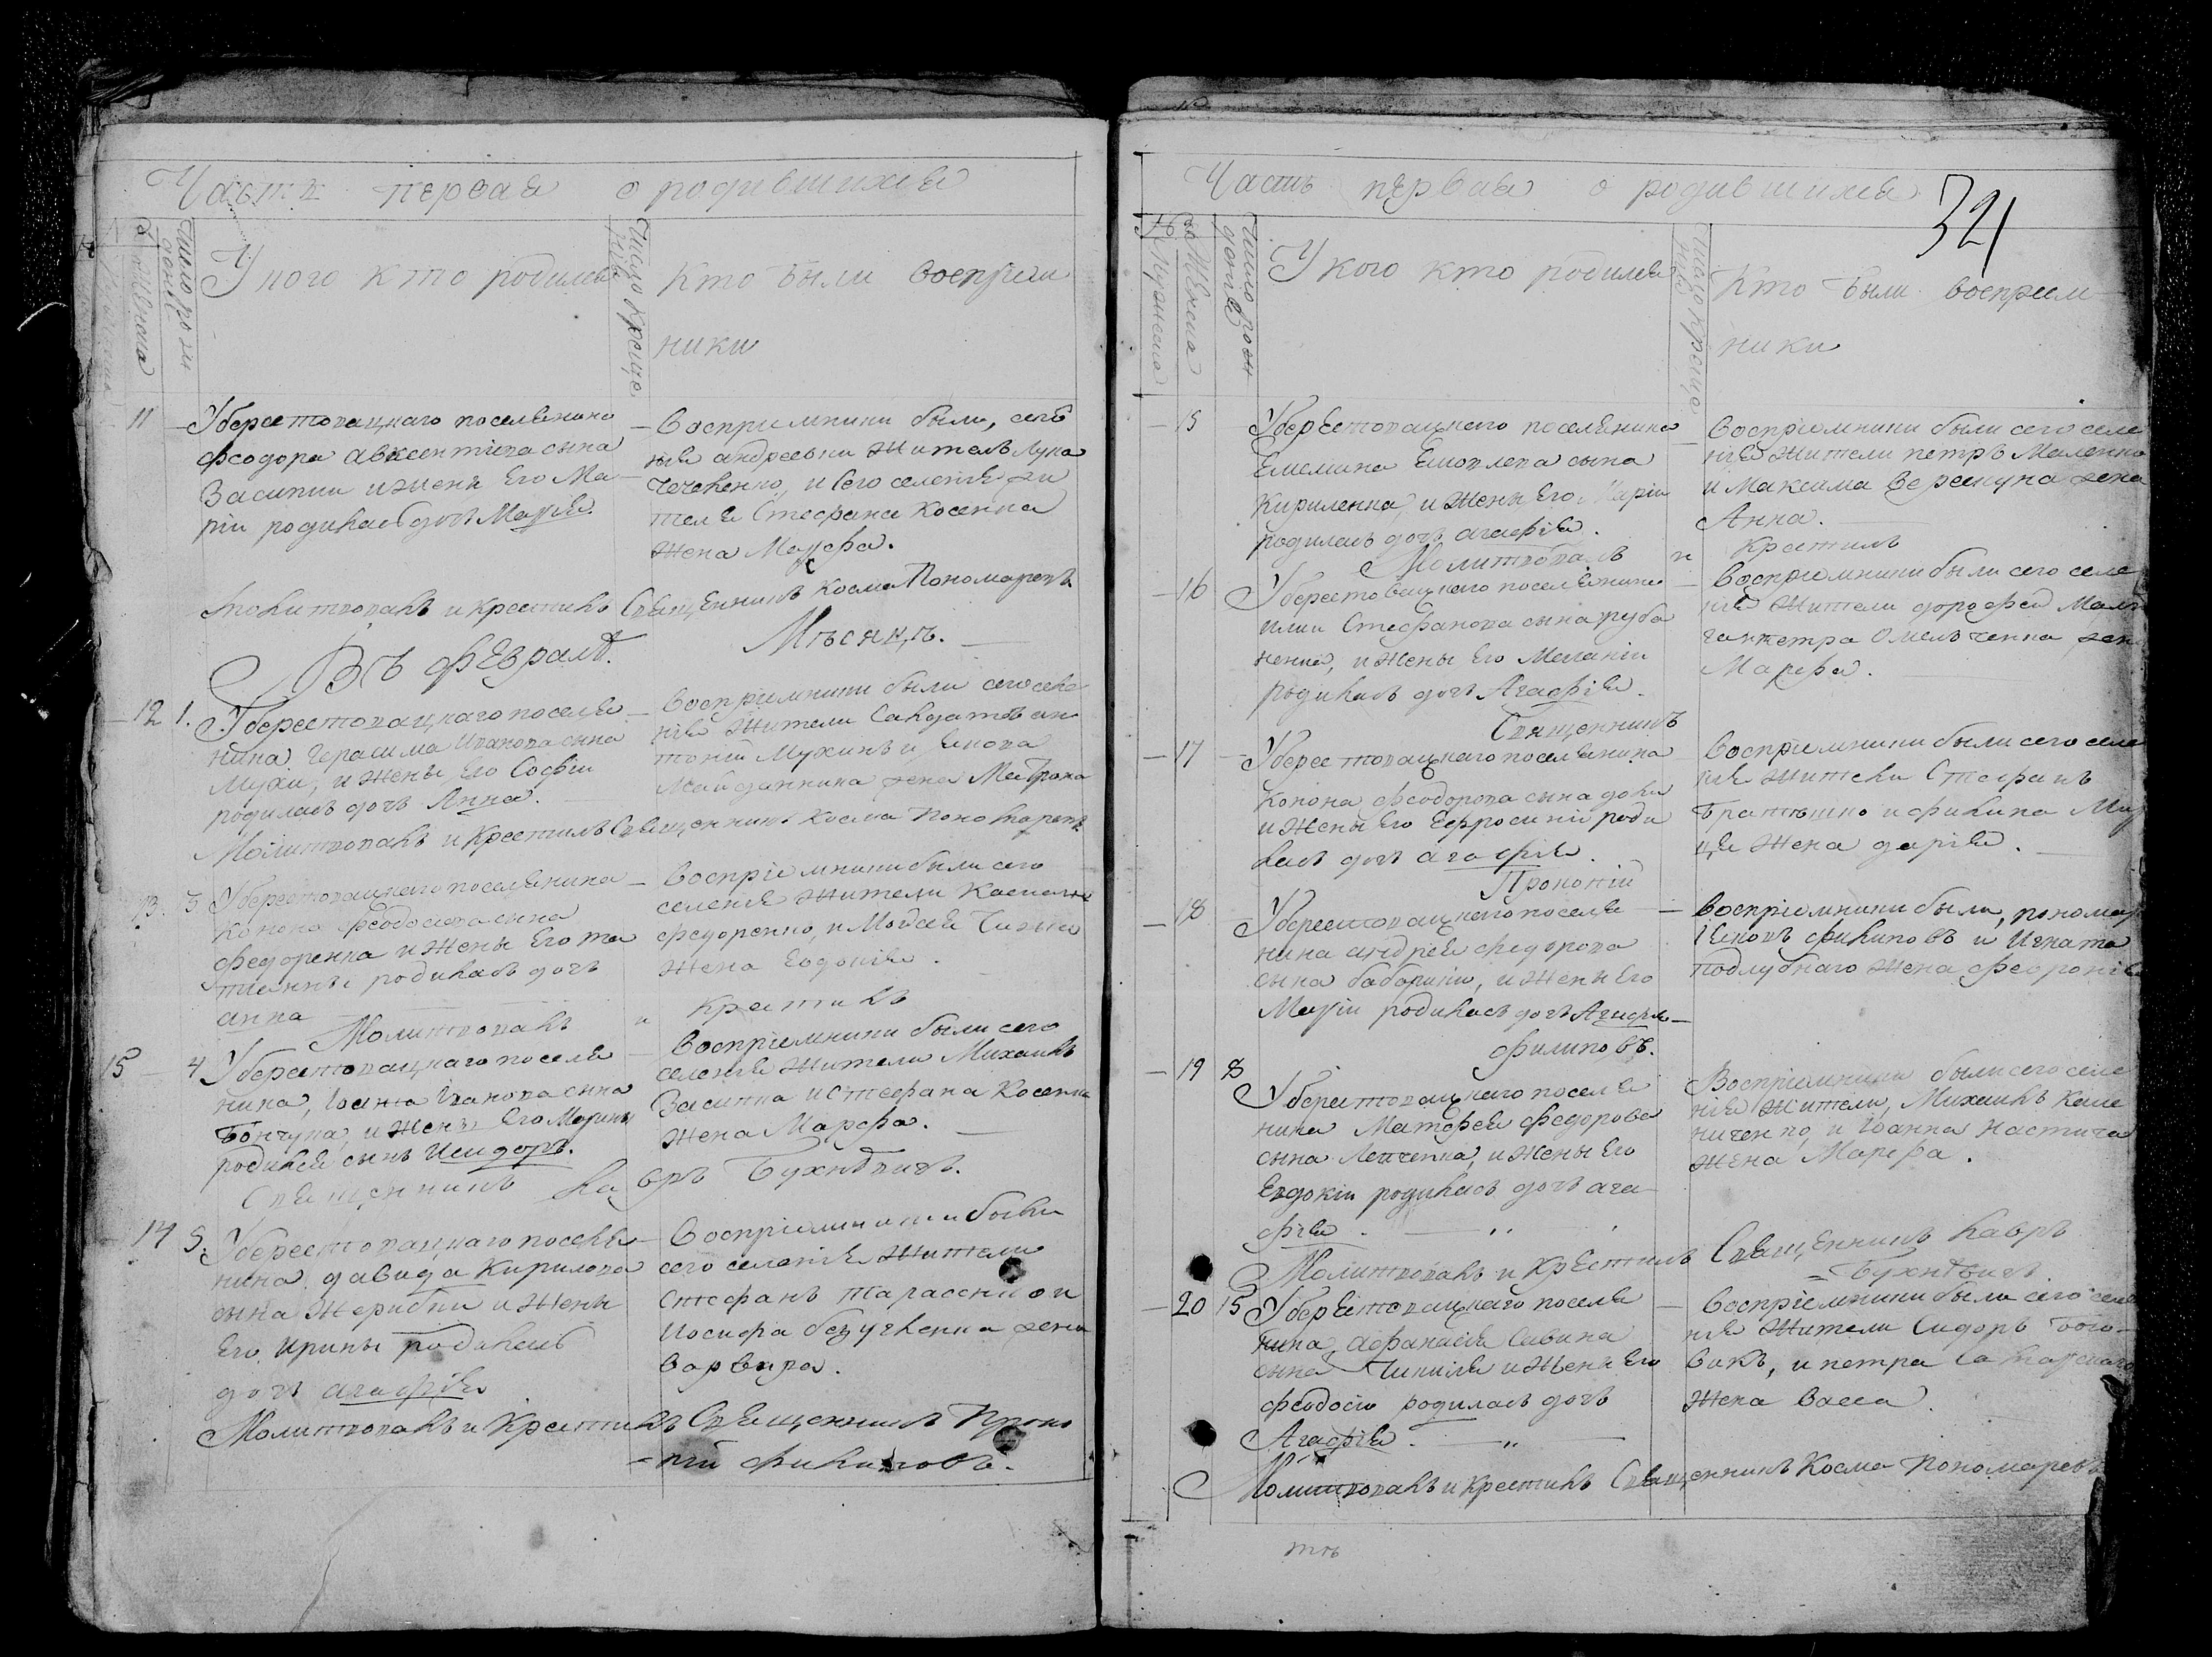 Часть первая о родившихся
Число рож
дения
У кого кто родился
Число креще
ния
Кто были восприем
ники
11
Уберестовацкаго поселянина
Феодора Авксентіева сына
Василии и жены Его Ма
ріи родилась дочь Марія.
Воспріемники были, сего
житель Лука
и сего селенія жи
теля Стефана Косенка
жена Марфа.
Молитвовалъ и крестилъ Священникъ Косма Пономаревъ
Въ Февралѣ. Мѣсяцѣ.
12 1.
Уберестовацкаго поселя
нина Герасима Иванова сына
Мухи, и жены Его Софіи
родилась дочь Анна.
Воспріемники были сего селе
нія жители Салдатъ Ан
тоній Мухинъ и Якова
Майданника жена Матрона
Молитвовалъ и Крестилъ Священникъ Косма Пономаревъ
13. 3
Уберестовацкаго поселянина
Конона Феодосіева сына
Федоренка и жены Его Та
тіянны родилась дочь
Анна
Воспріемники были сего
селенія жители
Федоренко, и Моисея
жена Евдокія.
Молитвовалъ и крестилъ
15 4
Уберестовацкаго поселя
нина, Іоанна Иванова сына
Бончука, и жены Его Марины
родился сынъ Исидоръ.
Воспріемники были сего
селенія жители Михаилъ
Засипка и Стефана Косенка
жена Марфа.
Священникъ Лавръ Бухнѣвичъ.
14 9.
Уберестовацкаго поселя
нина Давида Кирилова
сына Жерибки и жены
Его Ирины родилась
дочь Агафія
Воспріемники были
сего селенія жители
Стефанъ Тарасенко и
Иосифа жена
Варвара.
Молитвовалъ и Крестилъ Священникъ Проко
пій Филиповъ.
Часть первая о родившихся
321
Мужеска
Женска
Число рож
дения
У кого кто родился
Число креще
ния
Кто были восприем
ники
15
Уберестовацкаго поселянина
Емелияна сына
Кириленка, и жены Его Маріи
родилась дочь Агафія.
Воспріемники были сего селе
нія жители Петръ Маленко
и Максима Верещуна жена
Анна.
Молитвовалъ и Крестилъ
16
Уберестовацкаго поселянина
Иліи Стефанова сына Руба
ненка, и жены Его Меланіи
родилась дочь Агафія.
Воспріемники были сего селе
нія жители Дорофей
Петра Омельченка жена
Марфа.
Священникъ
17
Уберестовацкаго поселянина
Конона Феодорова сына
и жены Его Ефросиніи роди
лась дочь Агафія.
Воспріемники были сего селе
нія жители Стефанъ
и Филипа
жена Дарія.
Прокопій
18
Уберестовацкаго поселя
нина Андрея Федорова
сына Бабарики, и жены Его
Маріи родилась дочь Агафія
Воспріемники были, понамар
Іаковъ Филиповъ и Игната
Подлубнаго жена Февронія
Филиповъ.
19 8
Уберестовацкаго поселя
нина Матфея Федорова
сына Левченка, и жены Его
Евдокіи родилась дочь Ага
фія.
Воспріемники были сего селе
нія жители, Михаилъ Кале
ниченко, и Іоанна Настича
жена Марфа.
Молитвовалъ и Крестилъ Священникъ Лавръ
Бухнѣвичъ.
20 15
Уберестовацкаго поселя
нина, Афанасія Савина
сына Чикиля и жены Его
Феодосіи родилась дочь
Агафія.
Воспріемники были сего селе
нія жители Сидоръ
и Петра
жена Васса.
Молитвовалъ и крестилъ Священникъ Косма Пономаревъ
ть